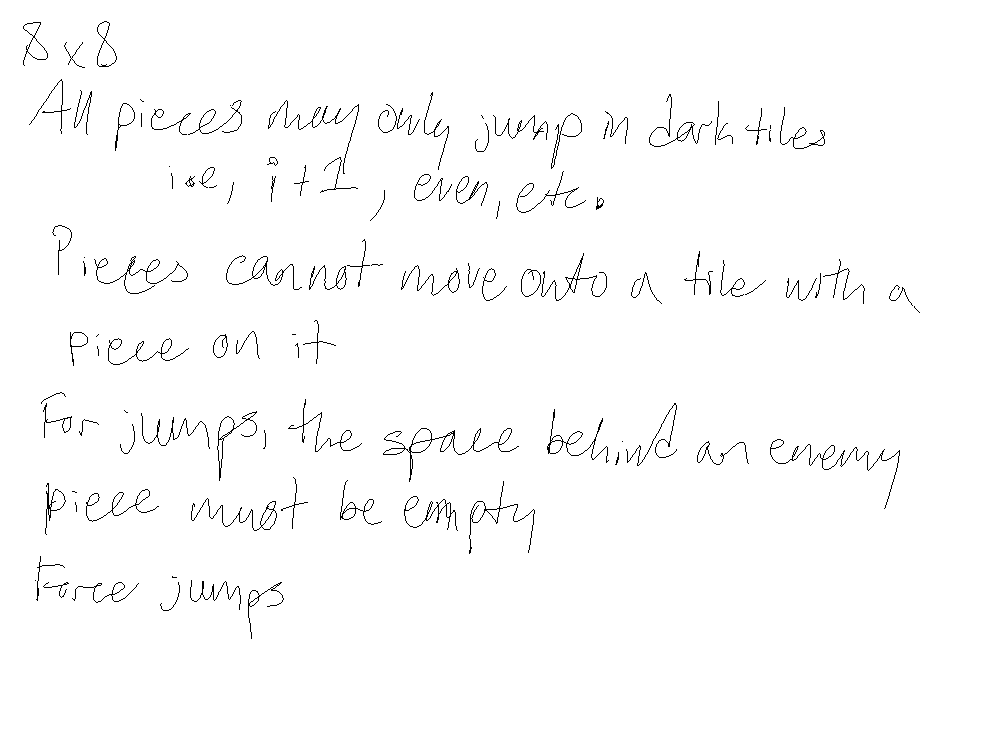 8x8
All pieces may only jump in dark tiles
i.e, i+1, even, etc.
Pieces cannot move onto a tile with a
piece on it
For jumps, the space behind an enemy
piece must be empty
Force jumps